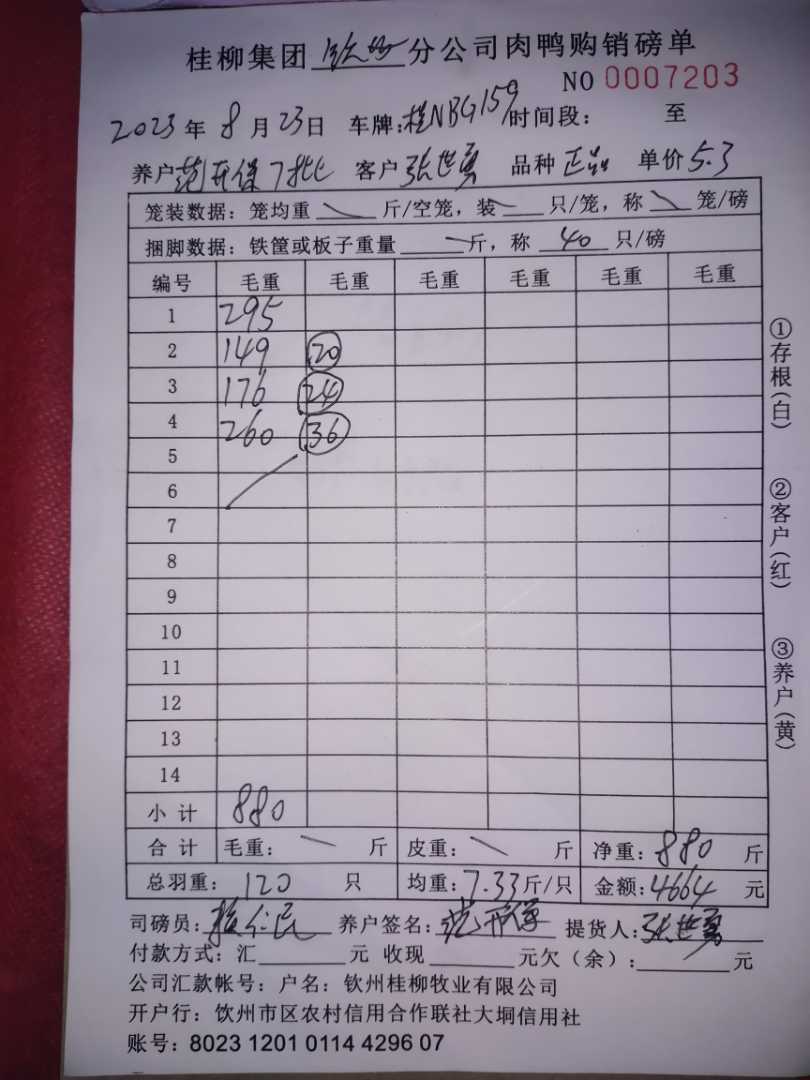 桂柳集团 钦州 分公司肉鸭购销磅单
NO 0007203
2023 年 8 月 23 日 车牌:桂NBG159 时间段: 至
养户 范开保 7批 客户 张世勇 品种 正品 单价 5.3
笼装数据: 笼均重 斤/空笼, 装 只/笼, 称 笼/磅
捆脚数据: 铁筐或板子重量 斤, 称 40 只/磅
编号 毛重 毛重 毛重 毛重 毛重 毛重
1 295
2 149 20
3 176 24
4 260 36
5
6
7
8
9
10
11
12
13
14
小 计 880
合 计 毛重: 斤 皮重: 斤 净重: 880 斤
总羽重: 120 只 均重: 7.33 斤/只 金额: 4664 元
司磅员: 养户签名: 范开保 提货人: 张世勇
付款方式: 汇 元 收现 元欠(余): 元
公司汇款帐号: 户名: 钦州桂柳牧业有限公司
开户行: 饮州市区农村信用合作联社大垌信用社
账号: 8023 1201 0114 4296 07
①存根(白)
②客户(红)
③养户(黄)